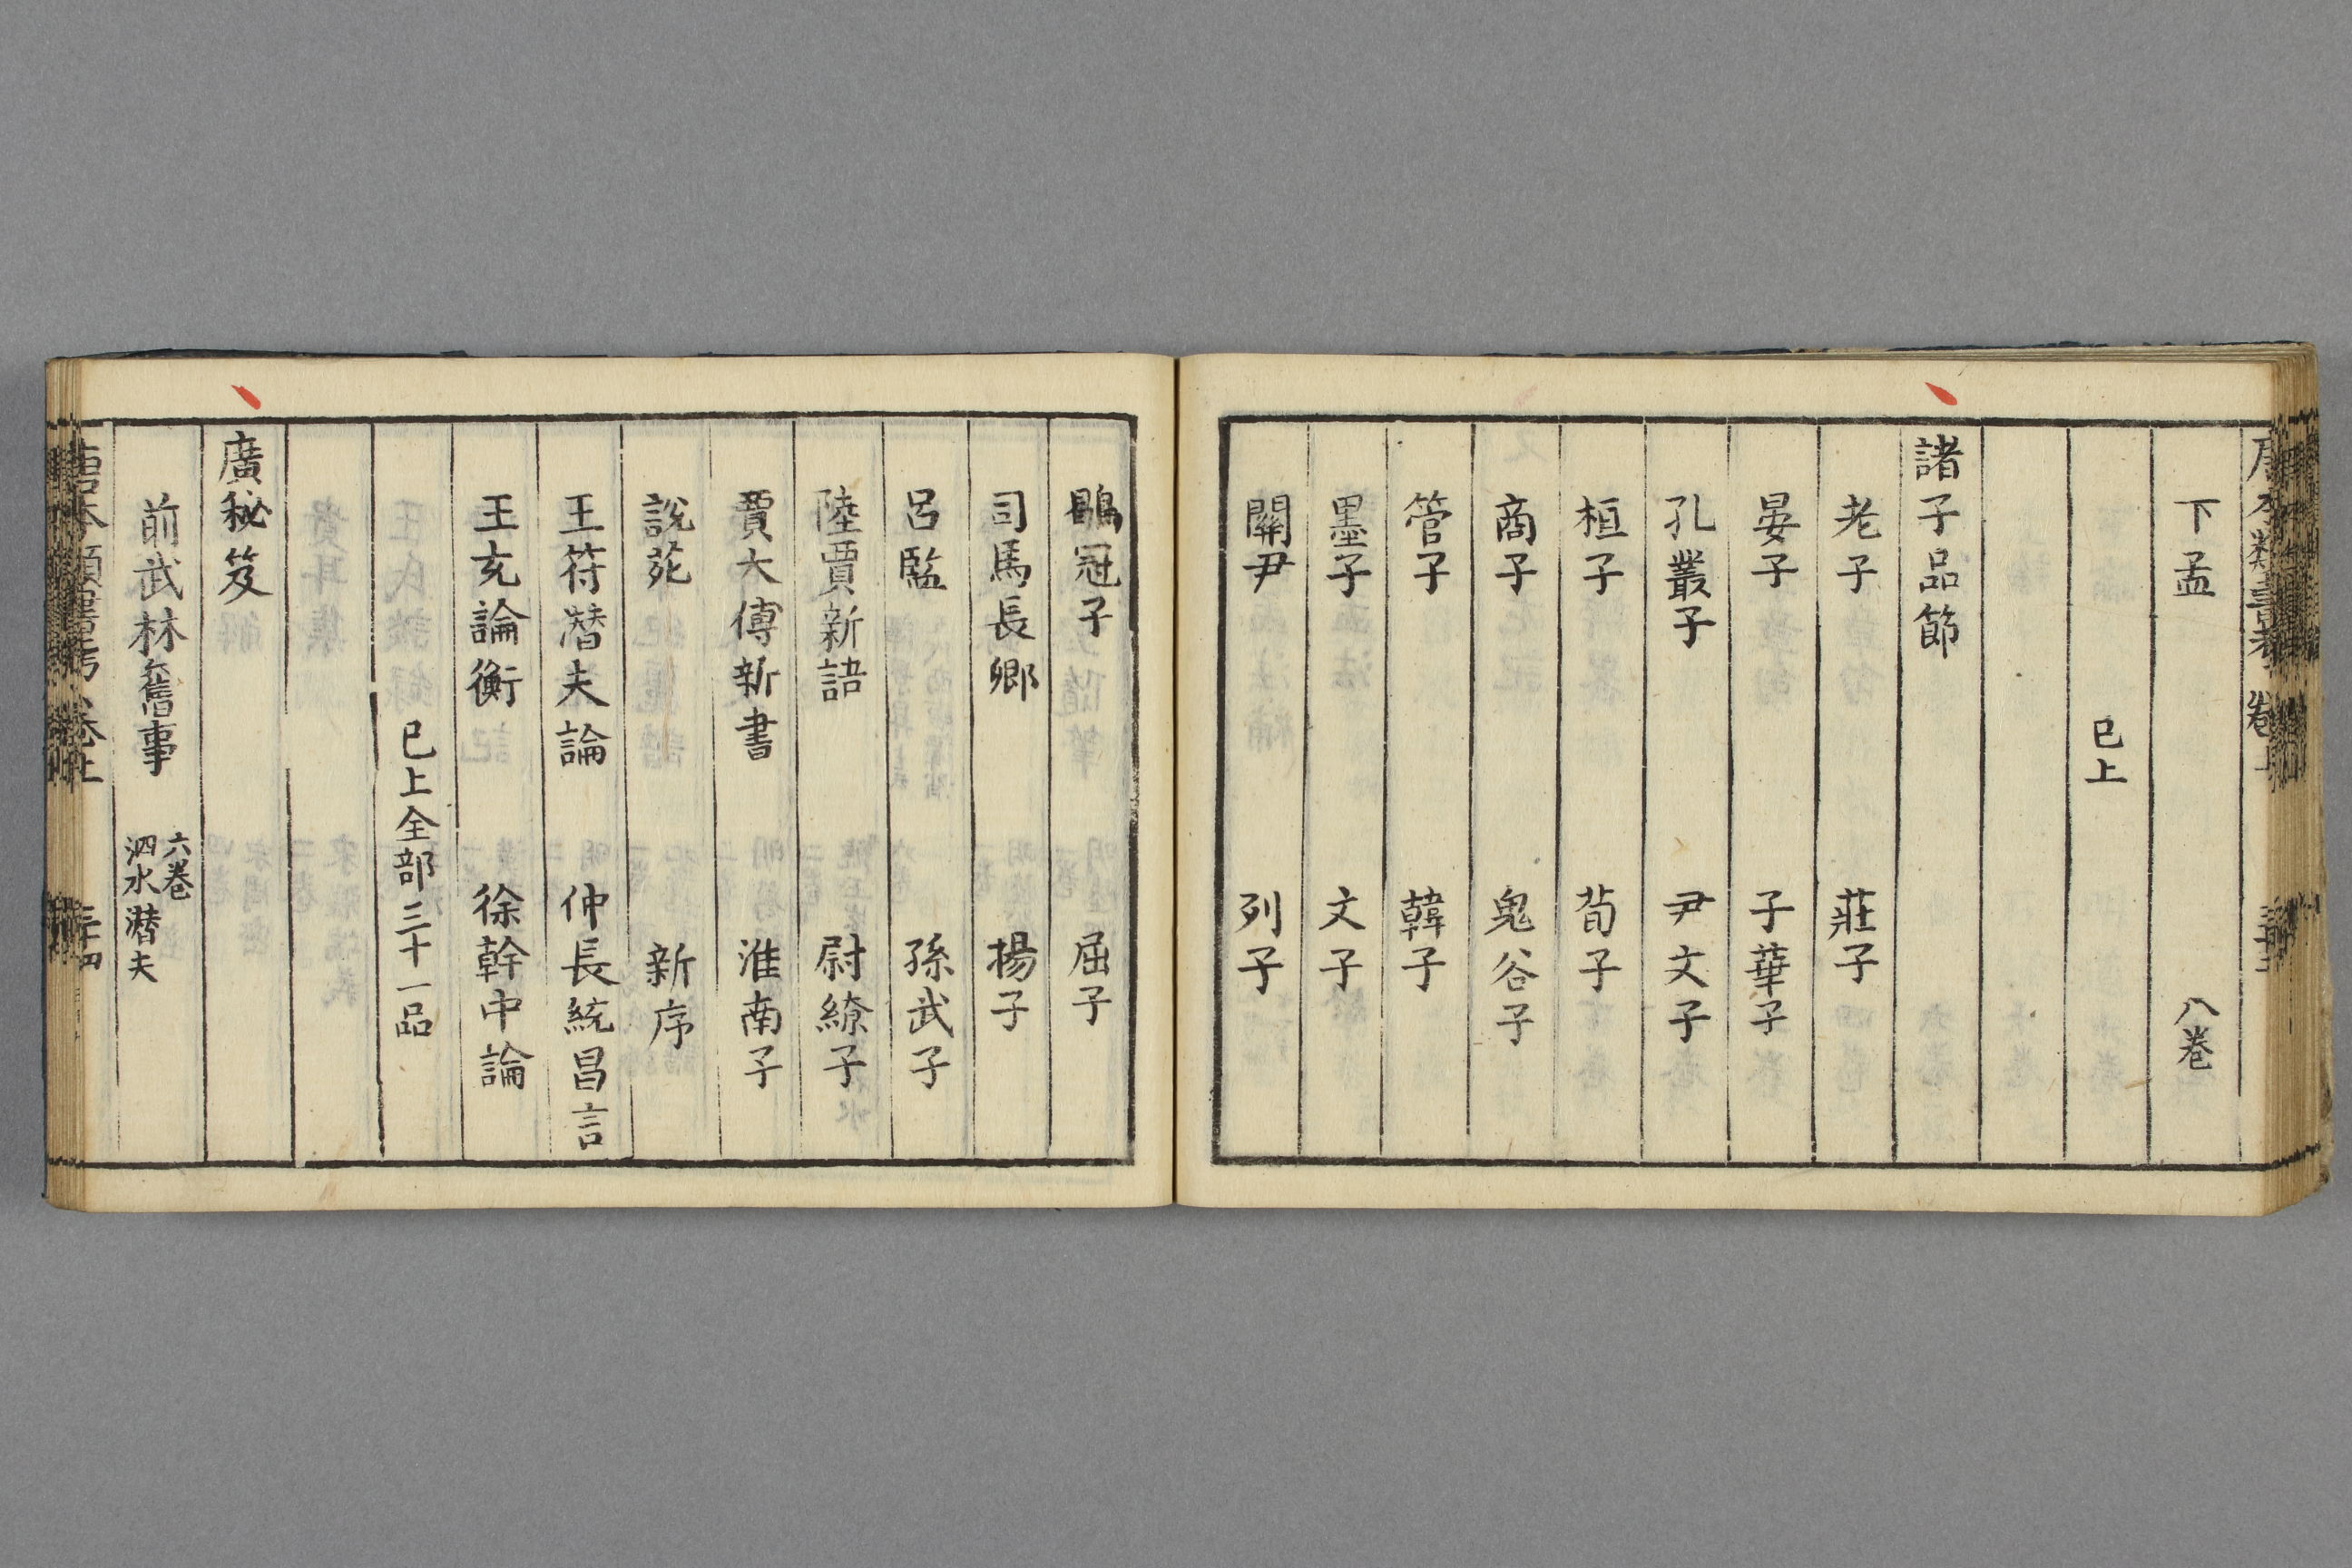 下孟 八巻
已上
諸子品節
老子 莊子
晏子 子華子
孔叢子 尹文子
桓子 荀子
商子 鬼谷子
管子 韓子
墨子 文子
關尹 列子
鶡冠子 屈子
司馬長卿 揚子
呂監 孫武子
陸賈新語 尉繚子
賈大傅新書 淮南子
說苑 新序
王符潜夫論 仲長統昌言
王充論衡 徐幹中論
已上全部三十一品
廣秘笈
前武林舊事 六巻 泗水潜夫
唐本類書考 巻上